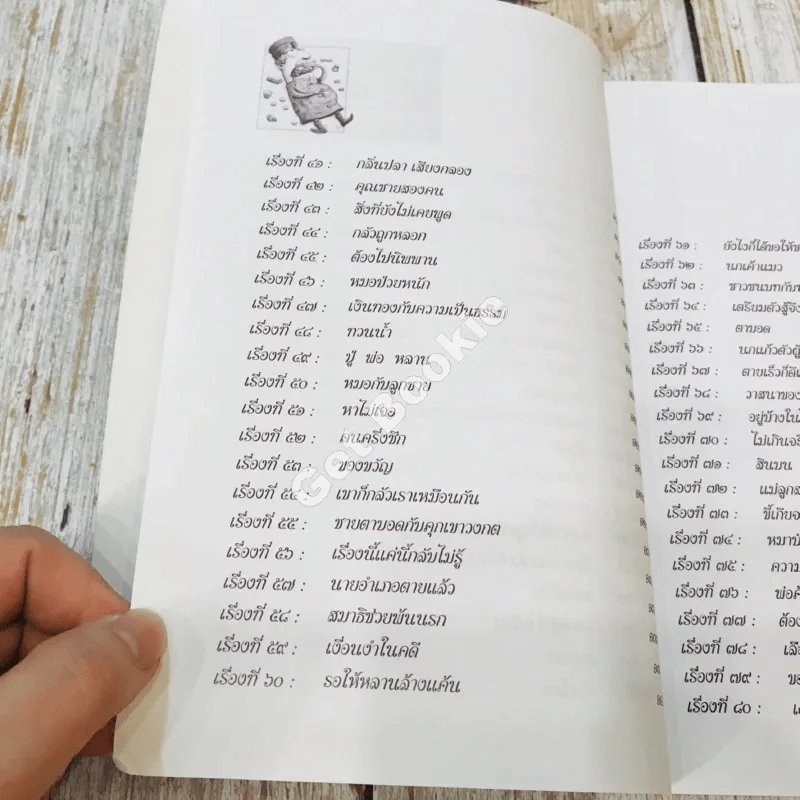 เรื่องที่ ๔๑ : กลิ่นปลา เสียงกลอง
เรื่องที่ ๔๒ : คุณชายสองคน
เรื่องที่ ๔๓ : สิ่งที่ยังไม่เคยพูด
เรื่องที่ ๔๔ : กลัวถูกหลอก
เรื่องที่ ๔๕ : ต้องไปนิพพาน
เรื่องที่ ๔๖ : หมอป่วยหนัก
เรื่องที่ ๔๗ : เงินทองกับความเป็นธรรม
เรื่องที่ ๔๘ : ทวนน้ำ
เรื่องที่ ๔๙ : ปู่ พ่อ หลาน
เรื่องที่ ๕๐ : หมอกับลูกชาย
เรื่องที่ ๕๑ : หาไม่เจอ
เรื่องที่ ๕๒ : คนครึ่งซีก
เรื่องที่ ๕๓ : ของขวัญ
เรื่องที่ ๕๔ : เขาก็กลัวเราเหมือนกัน
เรื่องที่ ๕๕ : ชายตาบอดกับคุกเขาวงกต
เรื่องที่ ๕๖ : เรื่องนี้แค่นี้กลับไม่รู้
เรื่องที่ ๕๗ : นายอำเภอตายแล้ว
เรื่องที่ ๕๘ : สมาธิช่วยพ้นนรก
เรื่องที่ ๕๙ : เงื่อนงำในคดี
เรื่องที่ ๖๐ : รอให้หลานล้างแค้น
Get Bookie
เรื่องที่ ๖๑ : ยังไงก็ได้ขอให้
เรื่องที่ ๖๒ : นกเค้าแมว
เรื่องที่ ๖๓ : ชาวชนบทกับ
เรื่องที่ ๖๔ : เตรียมตัวสู้
เรื่องที่ ๖๕ : ตาบอด
เรื่องที่ ๖๖ : นกแก้วตัว
เรื่องที่ ๖๗ : ตายเร็วก็ดี
เรื่องที่ ๖๘ : วาสนาของ
เรื่องที่ ๖๙ : อยู่ข้างใน
เรื่องที่ ๗๐ : ไม่เกินจริ
เรื่องที่ ๗๑ : สินบน
เรื่องที่ ๗๒ : แม่ลูก
เรื่องที่ ๗๓ : ขี้เกียจ
เรื่องที่ ๗๔ : หมาป่
เรื่องที่ ๗๕ : ความ
เรื่องที่ ๗๖ : พ่อค้
เรื่องที่ ๗๗ : ต้อง
เรื่องที่ ๗๘ : เลือ
เรื่องที่ ๗๙ : ขอ
เรื่องที่ ๘๐ :